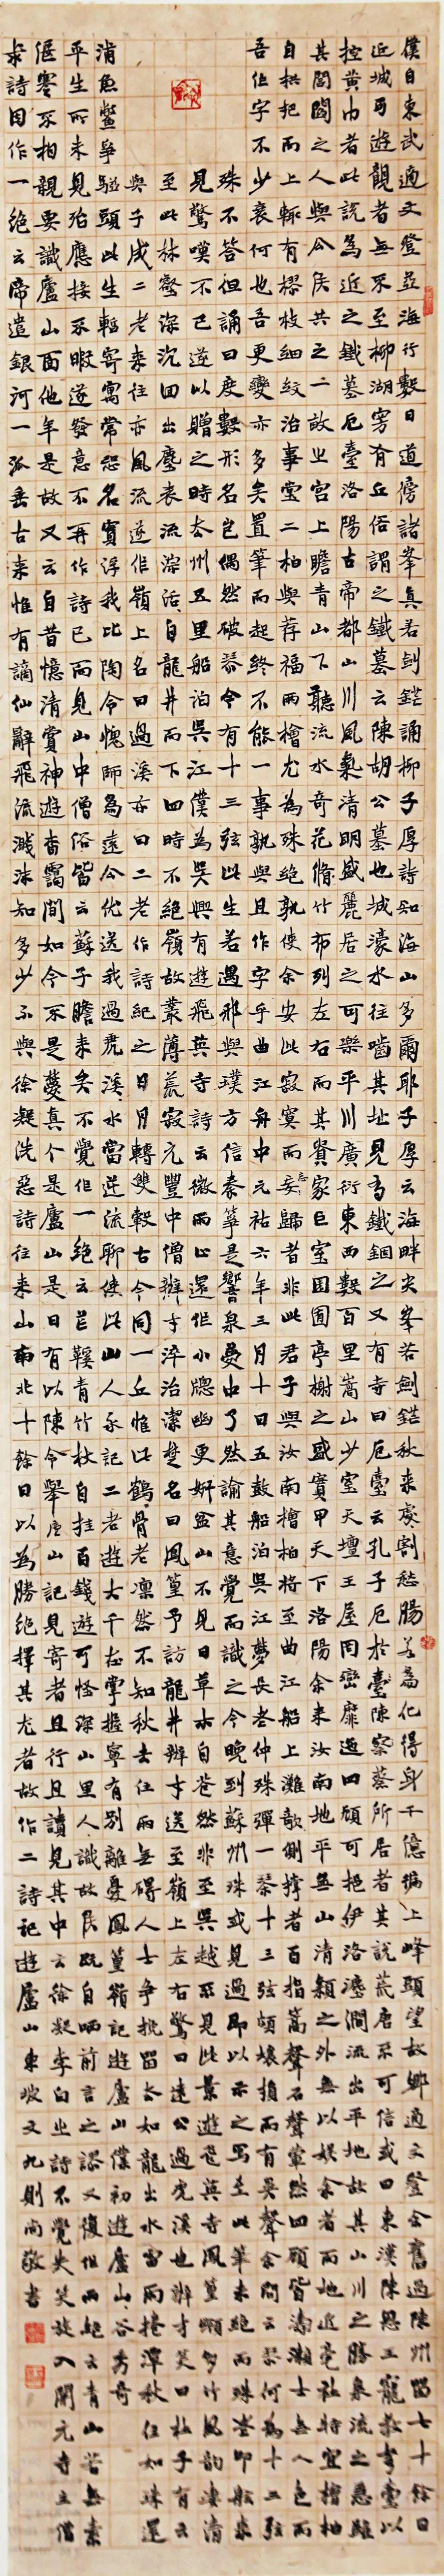 僕自東武適文登並海行數日道傍諸峯真若劍鋩誦柳子厚詩知海山多爾耶子厚云海畔尖峯若劍鋩秋來處割愁腸若為化得身千億徧上峰頭望故鄉適文登余舊過陳州留七十餘日
近城可遊觀者無不至柳湖旁有丘俗謂之鐵墓云陳胡公墓也城濠水往嚙其址見有鐵錮之又有寺曰厄臺云孔子厄於陳蔡所居者其說荒唐不可信或曰東漢陳愍王寵散弩臺以
控黃巾者此說為近之鐵墓厄臺洛陽古帝都山川風氣清明盛麗居之可樂平川廣衍東西數百里嵩山少室天壇王屋岡巒靡迤四顧可挹伊洛瀍澗流出平地故其山川之勝泉流之悉雖
其閭閻之人與公侯共之一畝之宮上瞻青山下聽流水奇花脩竹布列左右而其貴家巨室園囿亭榭之盛實甲天下洛陽余來汝南地平無山清潁之外無以娛余者而地近亳社特宜檜柏
自拱把而上輒有樛枝細紋治事堂二柏與荐福兩檜尤為殊絕孰使余安此寂寞而忘歸者非此君子與汝南檜柏將至曲江船上灘欹側撐者百指篙聲石聲犖然四顧皆濤瀨士無人色而
吾作字不少衰何也吾更變亦多矣置筆而起終不能一事孰與且作字乎曲江舟中元祐六年三月十日五鼓船泊吳江夢長老仲殊彈一琴十三弦頗壞損而有異聲余問云琴何為十三弦
殊不答但誦曰度數形名豈偶然破琴今有十三弦此生若遇邢與璞方信秦箏是響泉夢中了然諭其意覺而識之今晚到蘇州殊或見過即以示之寫至此筆未絕而殊老叩舷來
見驚嘆不已遂以贈之時去州五里船泊吳江僕為吳興有遊飛英寺詩云微雨止還作小牕幽更妍盆山不見日草木自蒼然非至吳越不見此景遊飛英寺風篁嶺多竹風韵凄清
至此林壑深沉迥出塵表流淙活自龍井而下四時不絕嶺故叢薄荒寂元豐中僧辨才淬治潔楚名曰風篁予訪龍井辨才送至嶺上左右驚曰遠公過虎溪也辨才笑曰杜子有云
與子成二老來往亦風流遂作嶺上名曰過溪亦曰二老作詩紀之日月轉雙轂古今同一丘惟此鶴骨老凛然不知秋去住兩無礙人士爭挽留去如龍出水雷雨捲潭秋住如珠還
浦魚鱉爭駢頭此生暫寄寓常恐名實浮我比陶令愧師為遠公優送我過虎溪水當逆流聊使此山人永記二老遊大千在掌握寧有別離憂風篁嶺記遊廬山僕初遊廬山谷秀奇
平生所未見殆應接不暇遂發意不再作詩已而見山中僧俗皆云蘇子瞻來矣不覺作一絕云芒鞵青竹杖自挂百錢遊可怪深山里人識故民既自哂前言之謬又復作兩絕云青山若無素
偃蹇不相親要識廬山面他年是故又云自昔憶清賞神遊杳靄間如今不是夢真个是廬山是日有以陳令舉廬山記見寄者且行且讀見其中云徐凝李白之詩不覺失笑旋入開元寺主僧
求詩因作一絕云帝遣銀河一派垂古來惟有謫仙辭飛流濺沫知多少不與徐凝洗惡詩往來山南北十餘日以為勝絕擇其尤者故作二詩記遊廬山東坡文九則尚敬書